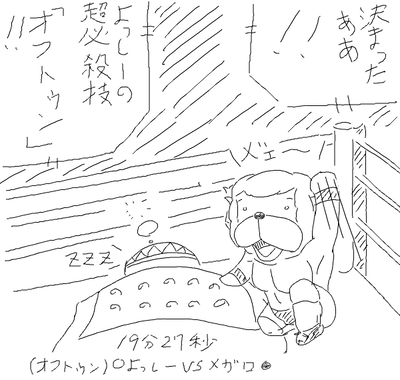 決まった
ああ
!!
よっしーの
超必殺技
「オフトゥン」
!!
\メェ〜/
zzz
19分27秒
(オフトゥン)○よっしーVSメガロ●